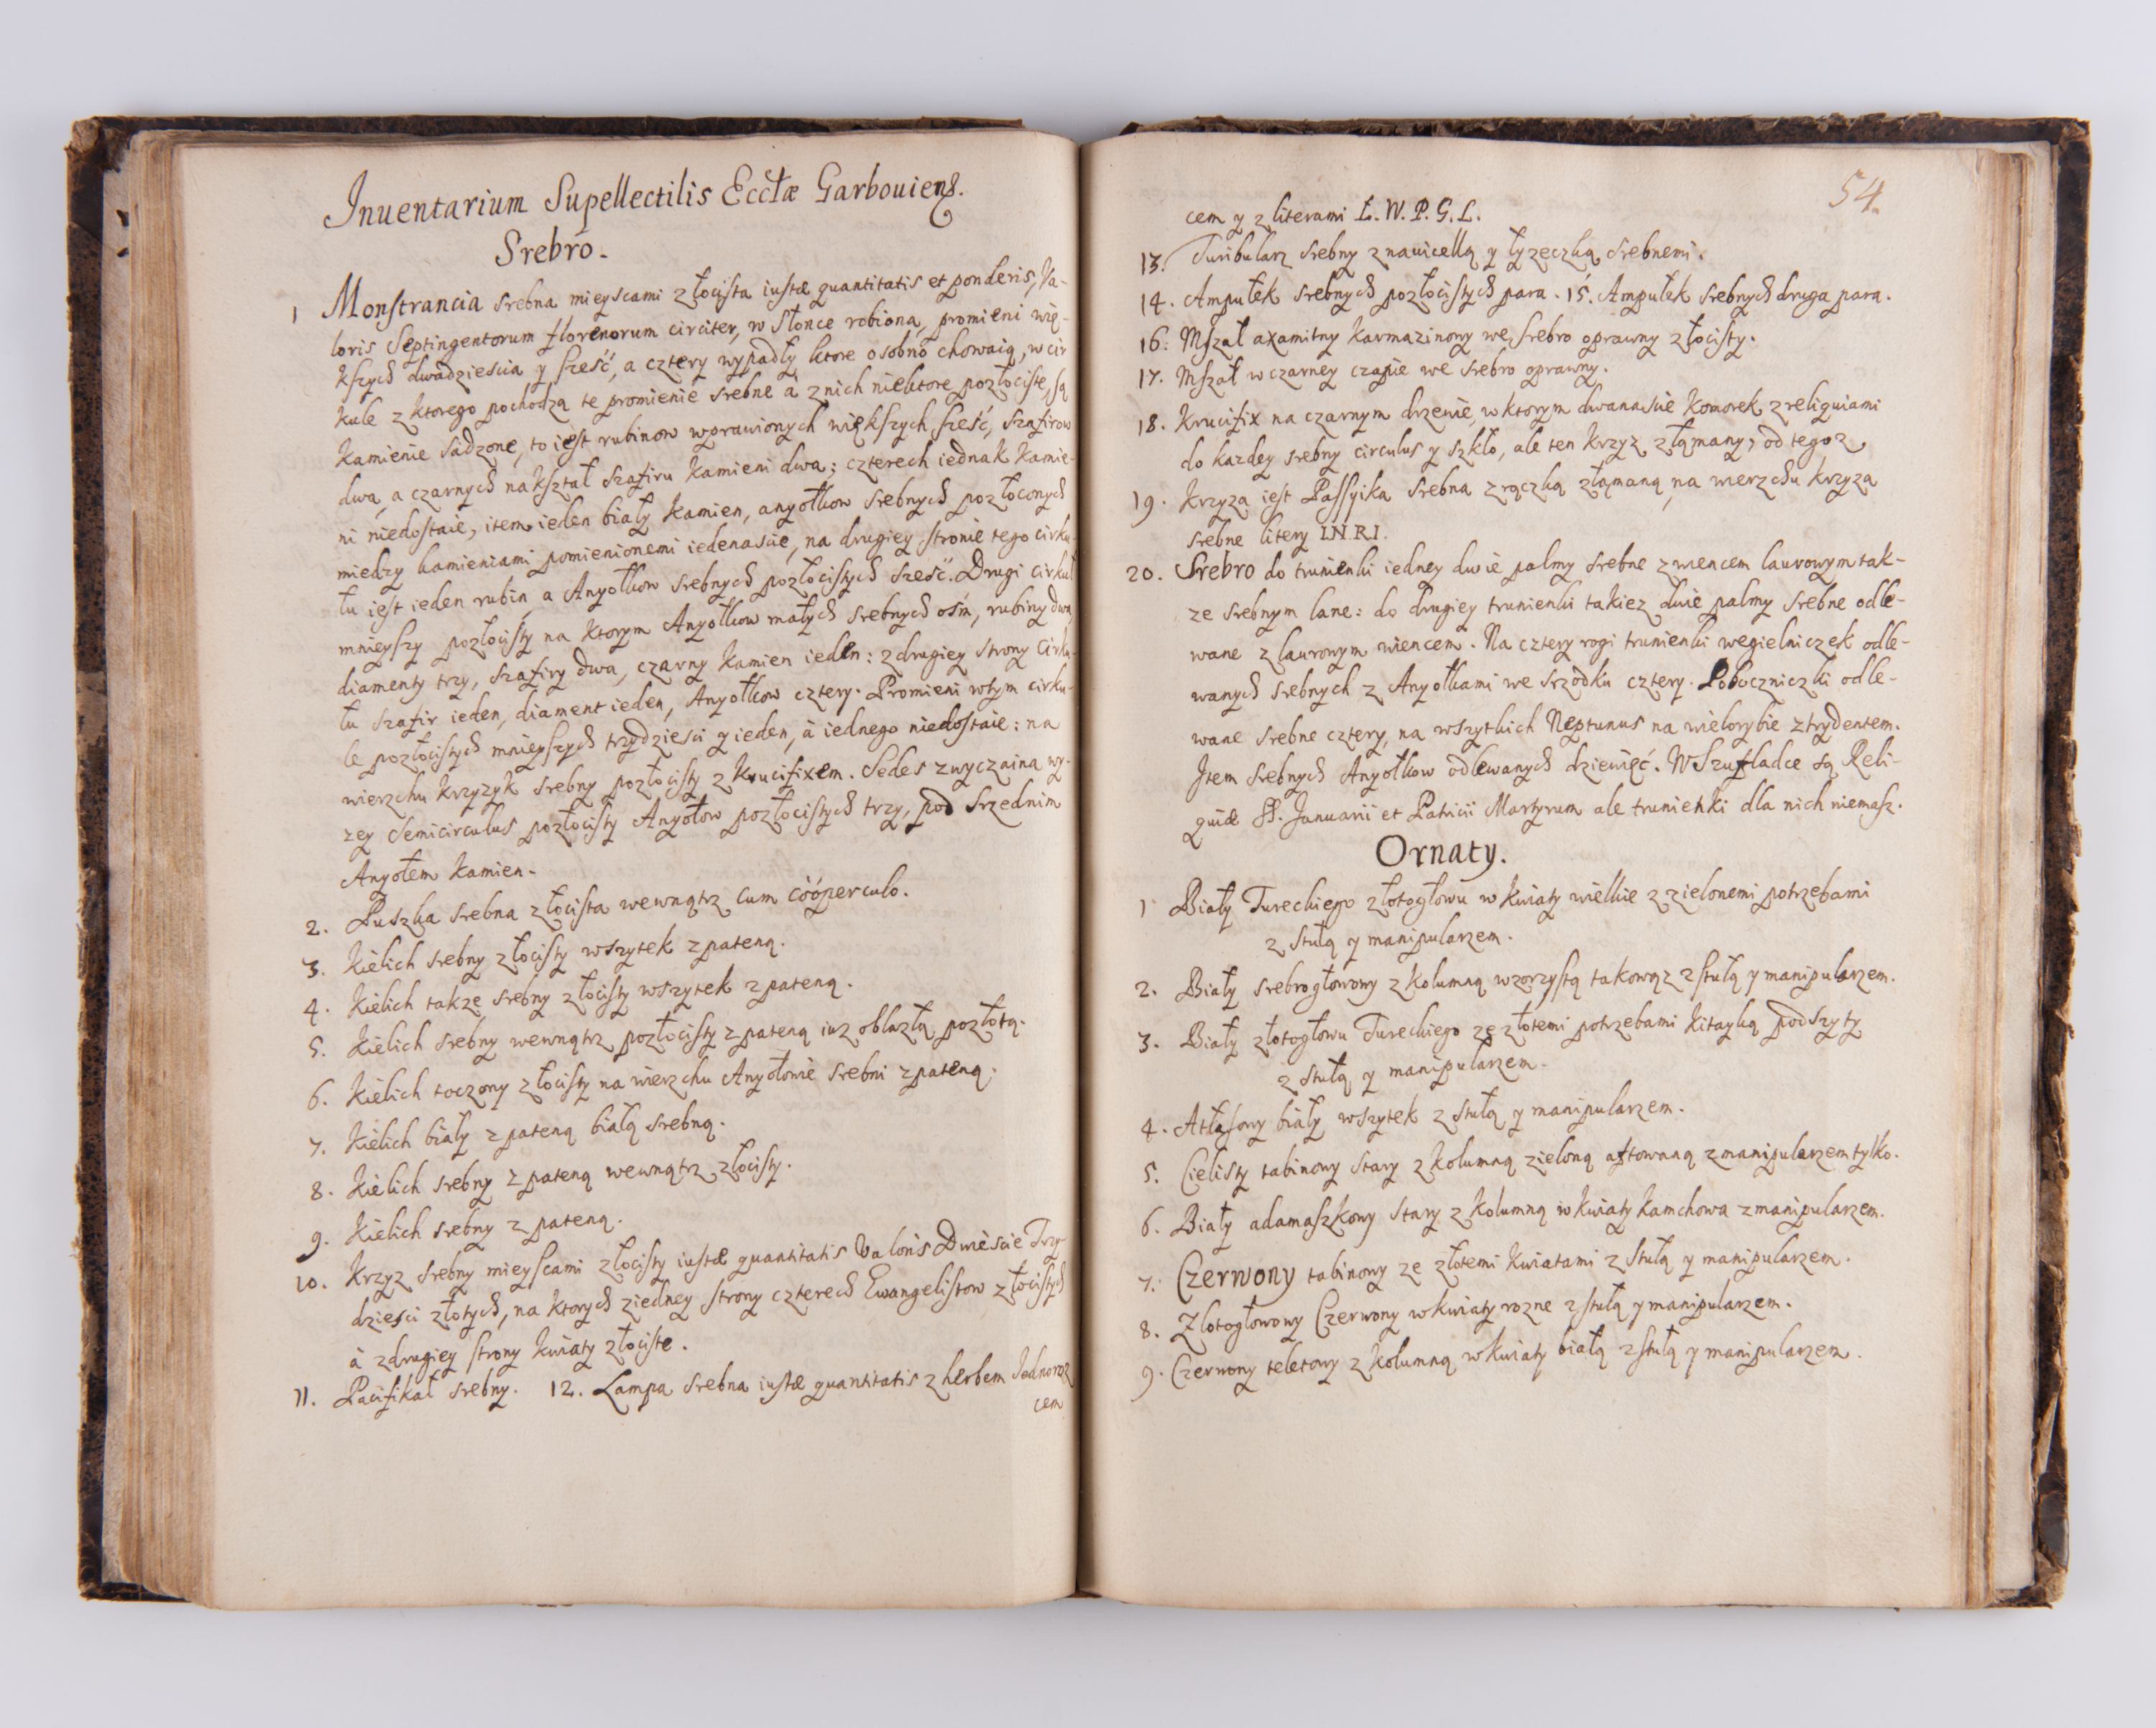 Inuentarium Supellectilis Eccłæ Garbouiens.
Srebro.
1 Monstrancia srebna mieyscami złocista iustæ quantitatis et ponderis, Va-
loris Septingentorum florenorum circiter, w słonce robiona, promieni wię-
kszych dwadziescia y sześć, a cztery wypadły ktore osobno chowaią, w cir
kule z ktorego pochodzą te promienie srebne a z nich niektore pozłociste, są
kamienie sadzone, to iest rubinow wprawionych większych sześć, szafirow
dwa, a czarnych nakształ szafiru kamieni dwa; czterech iednak kamie-
ni niedostaie, item ieden biały kamien, anyołkow srebnych pozłoconych
miedzy kamieniami pomienionemi iedenascie, na drugiey stronie tego cirku
łu iest ieden rubin, a Anyołkow srebnych pozłocistych sześć. Drugi cirkuł
mnieyszy pozłocisty na ktorym Anyołkow małych srebnych ośm, rubiny dwa,
diamenty trzy, szafiry dwa, czarny kamien ieden: z drugiey strony Cirku-
łu szafir ieden, diament ieden, Anyołkow cztery. Promieni wtym cirku-
le pozłocistych mnieyszych trzydziesci y ieden, à iednego niedostaie: na
wierzchu krzyzyk srebny pozłocisty z krucifixem. Sedes zwyczaina wy-
zey Semicirculus pozłocisty Anyołow pozłocistych trzy, pod srzednim
Anyołem kamien.
2. Puszka srebna złocista wewnątrz cum coóperculo.
3. Kielich srebny złocisty wszytek z pateną.
4. Kielich takze srebny złocisty wszytek z pateną.
5. Kielich srebny wewnątrz pozłocisty z pateną iuz oblazłą pozłotą.
6. Kielich toczony złocisty na wierzchu Anyołowie srebni z pateną.
7. Kielich biały z pateną białą srebną.
8. Kielich srebny z pateną wewnątrz złocisty.
9. Kielich srebny z pateną.
10. Krzyz srebny mieyscami złocisty iustæ quantitatis Valoris Dwiescie Trzy-
dziesci złotych, na ktorych ziedney strony czterech Ewangelistow złocistych
à zdrugiey strony kwiaty złociste.
11. Pacifikał srebny. 12. Lampa srebna iustæ quantitatis z herbem Jednoroz
cem
54.
cem y z literami Ł. W. P. G. L.
13. Turibularz srebny z nauicellą y łyzeczką srebnemi.
14. Ampułek srebnych pozłocistych para. 15. Ampułek srebnych druga para.
16. Mszał axamitny karmazinowy we srebro oprawny złocisty.
17. Mszał w czarney czapie we srebro oprawny.
18. Krucifix na czarnym drzewie, w ktorym dwanascie komorek z reliquiami
do kazdey srebny circulus y szkło, ale ten krzyz złąmany, od tegoz
19. Krzyza iest Passyika srebna z rączką złąmaną, na wierzchu krzyza
srebne litery I.N.R.I.
20. Srebro do trunienki iedney dwie palmy srebne z wiencem laurowym tak-
ze srebnym lane: do drugiey trunienki takiez dwie palmy srebne odle-
wane z laurowym wiencem. Na cztery rogi trunienki wegielniczek odle-
wanych srebnych z Anyołkami we srzodku cztery. Poboczniczki odle-
wane srebne cztery, na wszytkich Neptunus na wielorybie z trydentem.
Item srebnych Anyołkow odlewanych dziewięć. W Szufladce są Reli-
quiæ SS. Januarii et Patricii Martyrum ale trunienki dla nich niemasz.
Ornaty.
1 Biały Tureckiego złotogłowu w kwiaty wielkie z zielonemi potrzebami
z stułą y manipularzem.
2. Biały srebrogłowowy z kolumną wzorzystą takowąz z stułą y manipularzem.
3. Biały złotogłowu Tureckiego ze złotemi potrzebami kitayką podszyty
z stułą y manipularzem.
4. Atłasowy biały wszytek z stułą y manipularzem.
5. Cielisty tabinowy stary z kolumną zieloną aftowaną z manipularzem tylko.
6. Biały adamaszkowy stary z kolumną w kwiaty kamchowa z manipularzem.
7. Czerwony tabinowy ze złotemi kwiatami z stułą y manipularzem.
8. Złotogłowowy Czerwony w kwiaty rozne z stułą y manipularzem.
9. Czerwony teletowy z kolumną w kwiaty białą z stułą y manipularzem.